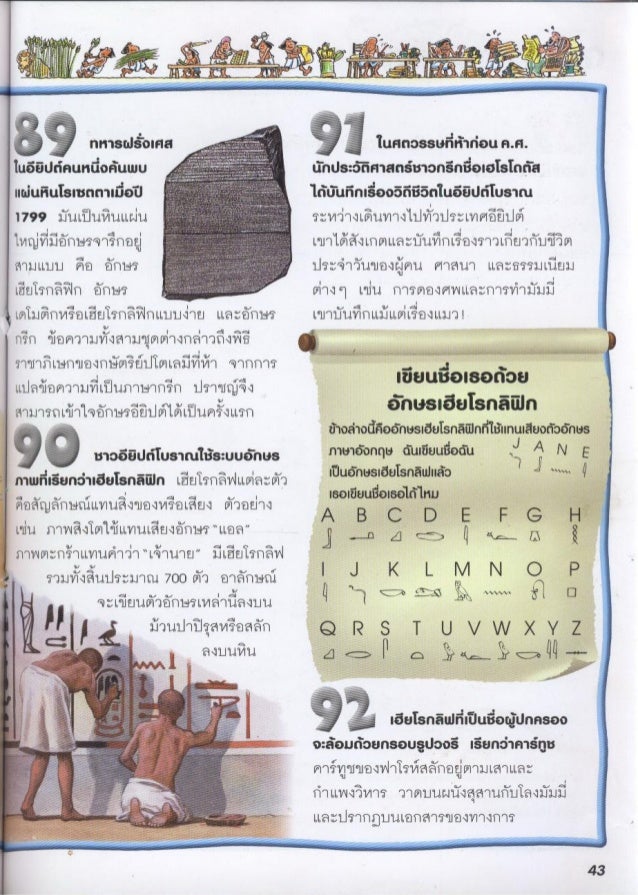 89 ทหารฝรั่งเศส
ในอียิปต์คนหนึ่งค้นพบ
แผ่นหินโรเซตตาเมื่อปี
1799 มันเป็นหินแผ่น
ใหญ่ที่มีอักษรจารึกอยู่
สามแบบ คือ อักษร
เฮียโรกลิฟิก อักษร
เดโมติกหรือเฮียโรกลิฟิกแบบง่าย และอักษร
กรีก ข้อความทั้งสามชุดต่างกล่าวถึงพิธี
ราชาภิเษกของกษัตริย์ปโตเลมีที่ห้า จากการ
แปลข้อความที่เป็นภาษากรีก ปราชญ์จึง
สามารถเข้าใจอักษรอียิปต์ได้เป็นครั้งแรก
90 ชาวอียิปต์โบราณใช้ระบบอักษร
ภาพที่เรียกว่าเฮียโรกลิฟิก เฮียโรกลิฟแต่ละตัว
คือสัญลักษณ์แทนสิ่งของหรือเสียง ตัวอย่าง
เช่น ภาพสิงโตใช้แทนเสียงอักษร "แอล"
ภาพตะกร้าแทนคำว่า "เจ้านาย" มีเฮียโรกลิฟ
รวมทั้งสิ้นประมาณ 700 ตัว อาลักษณ์
จะเขียนตัวอักษรเหล่านี้ลงบน
ม้วนปาปิรุสหรือสลัก
ลงบนหิน
91 ในศตวรรษที่ห้าก่อน ค.ศ.
นักประวัติศาสตร์ชาวกรีกชื่อเฮโรโดตัส
ได้บันทึกเรื่องวิถีชีวิตในอียิปต์โบราณ
ระหว่างเดินทางไปทั่วประเทศอียิปต์
เขาได้สังเกตและบันทึกเรื่องราวเกี่ยวกับชีวิต
ประจำวันของผู้คน ศาสนา และธรรมเนียม
ต่าง ๆ เช่น การดองศพและการทำมัมมี่
เขาบันทึกแม้แต่เรื่องแมว !
เขียนชื่อเธอด้วย
อักษรเฮียโรกลิฟิก
ข้างล่างนี้คืออักษรเฮียโรกลิฟิกที่ใช้แทนเสียงตัวอักษร
ภาษาอังกฤษ ฉันเขียนชื่อฉัน J A N E
เป็นอักษรเฮียโรกลิฟแล้ว
เธอเขียนชื่อเธอได้ไหม
A B C D E F G H
I J K L M N O P
Q R S T U V W X Y Z
92 เฮียโรกลิฟที่เป็นชื่อผู้ปกครอง
จะล้อมด้วยกรอบรูปวงรี เรียกว่าคาร์ทูช
คาร์ทูชของฟาโรห์สลักอยู่ตามเสาและ
กำแพงวิหาร วาดบนผนังสุสานกับโลงมัมมี่
และปรากฏบนเอกสารของทางการ
43